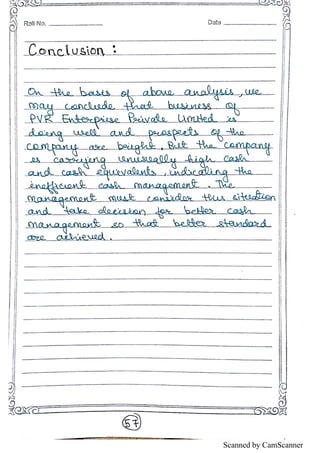 Roll No. Date
Conclusion :
On the basis of above analysis, we
may conclude that business of
PVR Enterprise Private Limited is
doing well and prospects of the
company are bright. But the company
is carrying unusually high cash
and cash equivalents, indicating the
inefficient cash management. The
management must consider this situation
and take decision for better cash
management so that better standard
are achieved.
57
Scanned by CamScanner